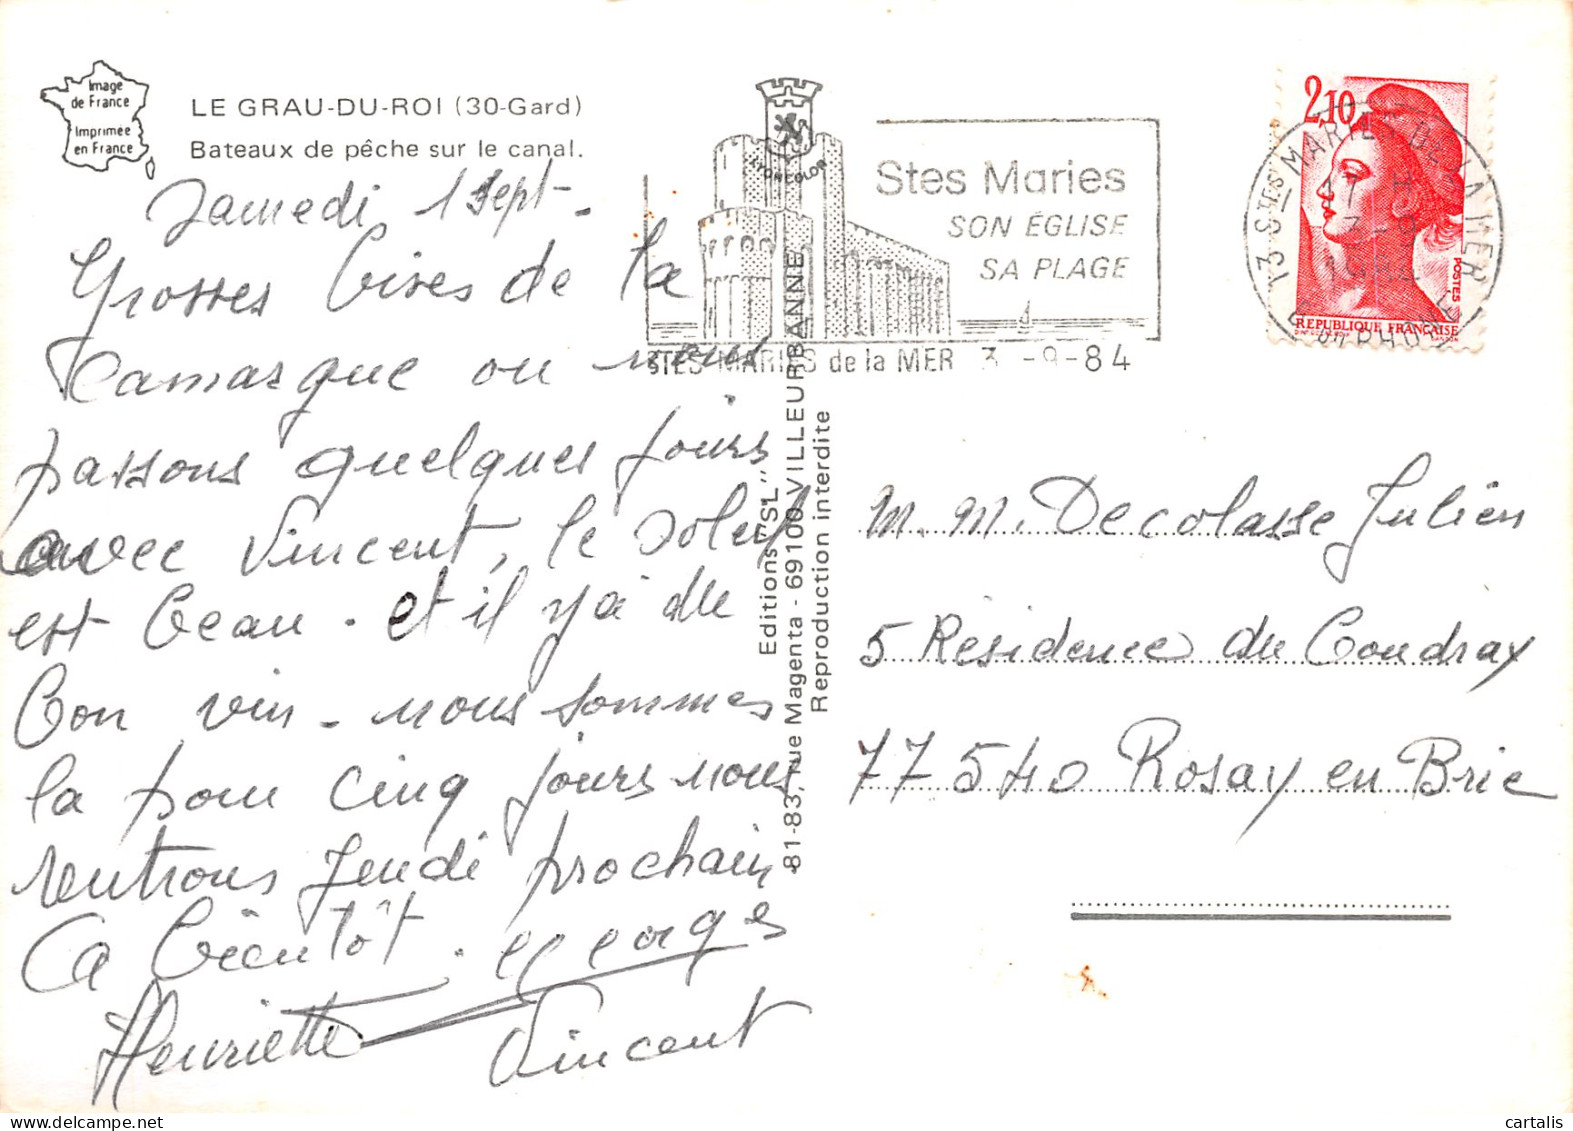 Image
de France
Imprimée
en France
LE GRAU-DU-ROI (30-Gard)
Bateaux de pêche sur le canal.
Samedi 1 Sept-
Grosses bises de la
Camargue ou nous
passons quelques jours
avec Vincent, le soleil
est beau. et il y a du
bon vin - nous sommes
la pour cinq jours nous
rentrons Jeudi prochain.
A bientôt. georges
Henriette Vincent
Editions "SL"
81-83, rue Magenta - 69100 VILLEURBANNE
Reproduction interdite
Stes Maries
SON ÉGLISE
SA PLAGE
STES MARIES de la MER 3 -9-84
2,10
POSTES
REPUBLIQUE FRANÇAISE
13 STES MARIES DE LA MER
M. M. Decolasse Julien
5 Résidence du Coudray
77540 Rosay en Brie
cartalis